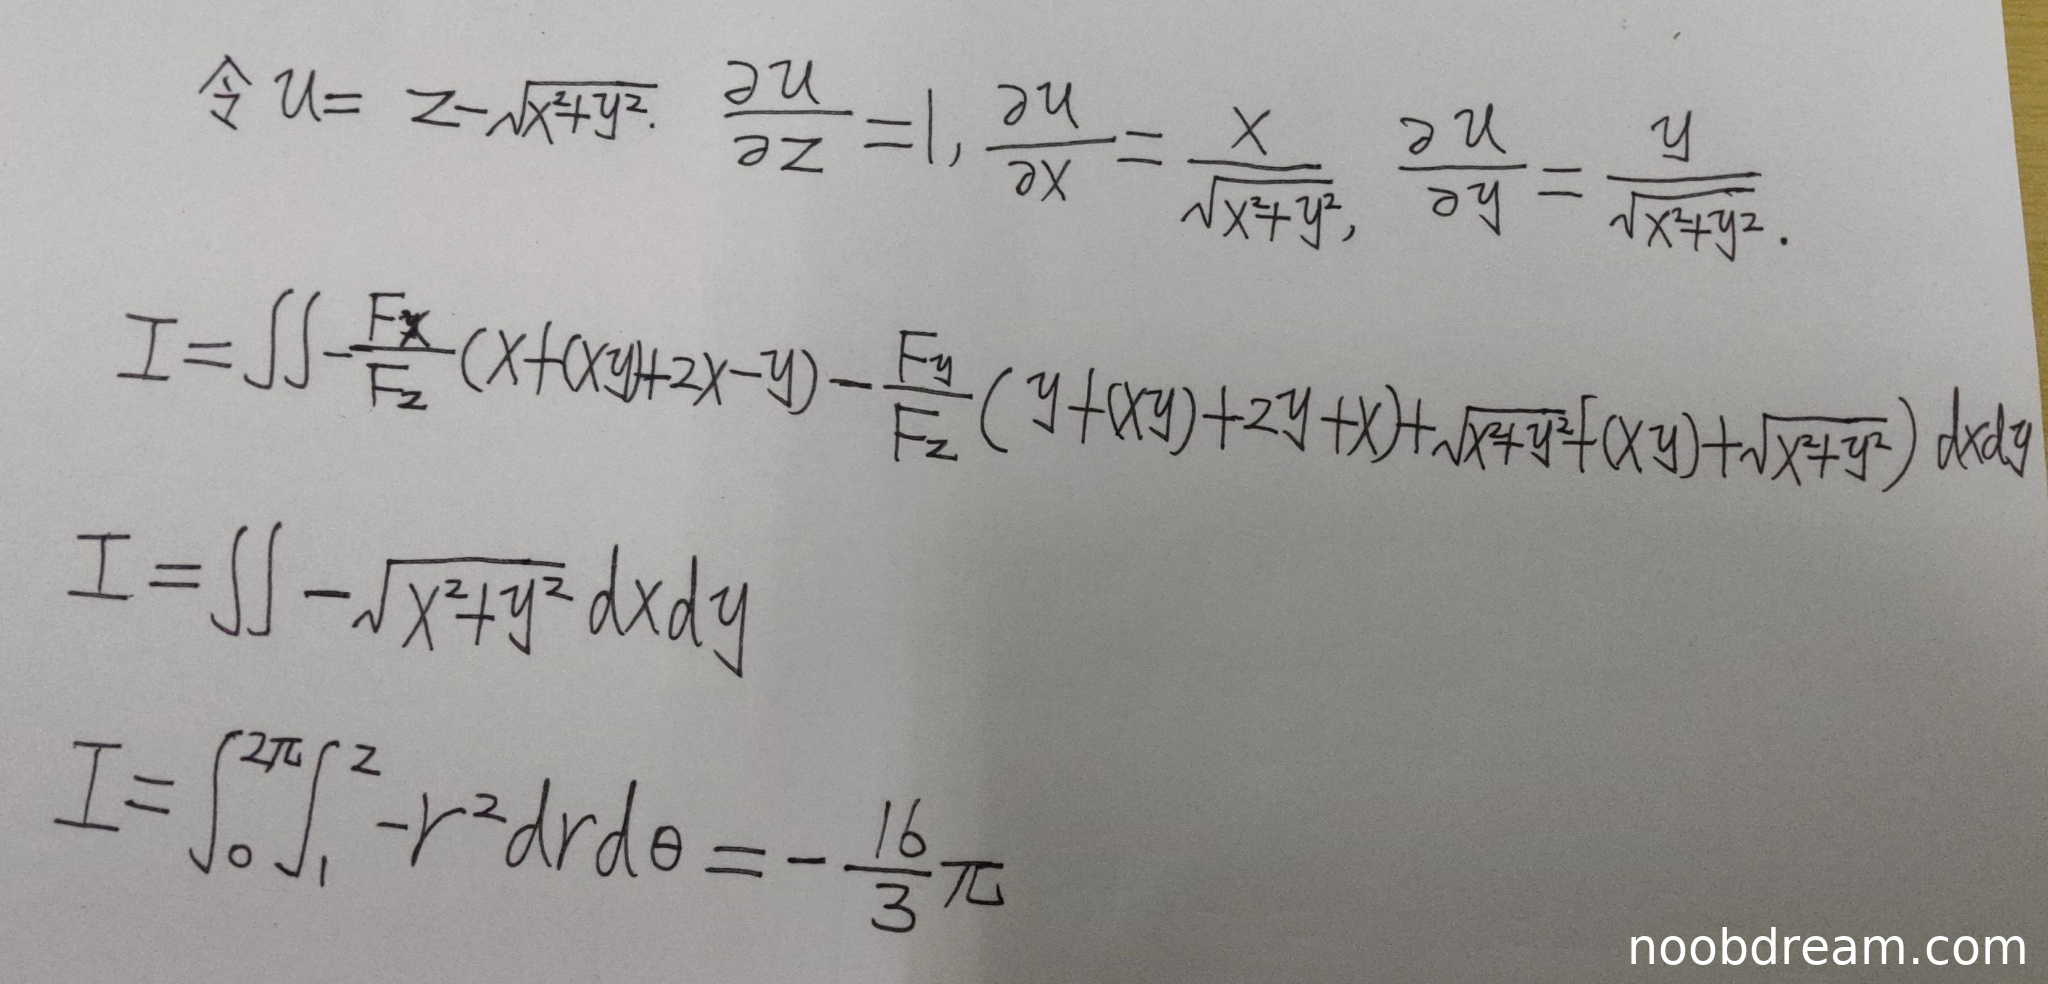 令 u = z-√(x²+y²). ∂u/∂z = 1, ∂u/∂x = x/√(x²+y²), ∂u/∂y = y/√(x²+y²).
I = ∬ -Fx/Fz (x+(xy)+2x-y) - Fy/Fz (y+(xy)+2y+x)+√(x²+y²)f(xy)+√(x²+y²)) dxdy
I = ∬ -√(x²+y²) dxdy
I = ∫₀^2π ∫₁^2 -r² dr dθ = -16/3 π
noobdream.com